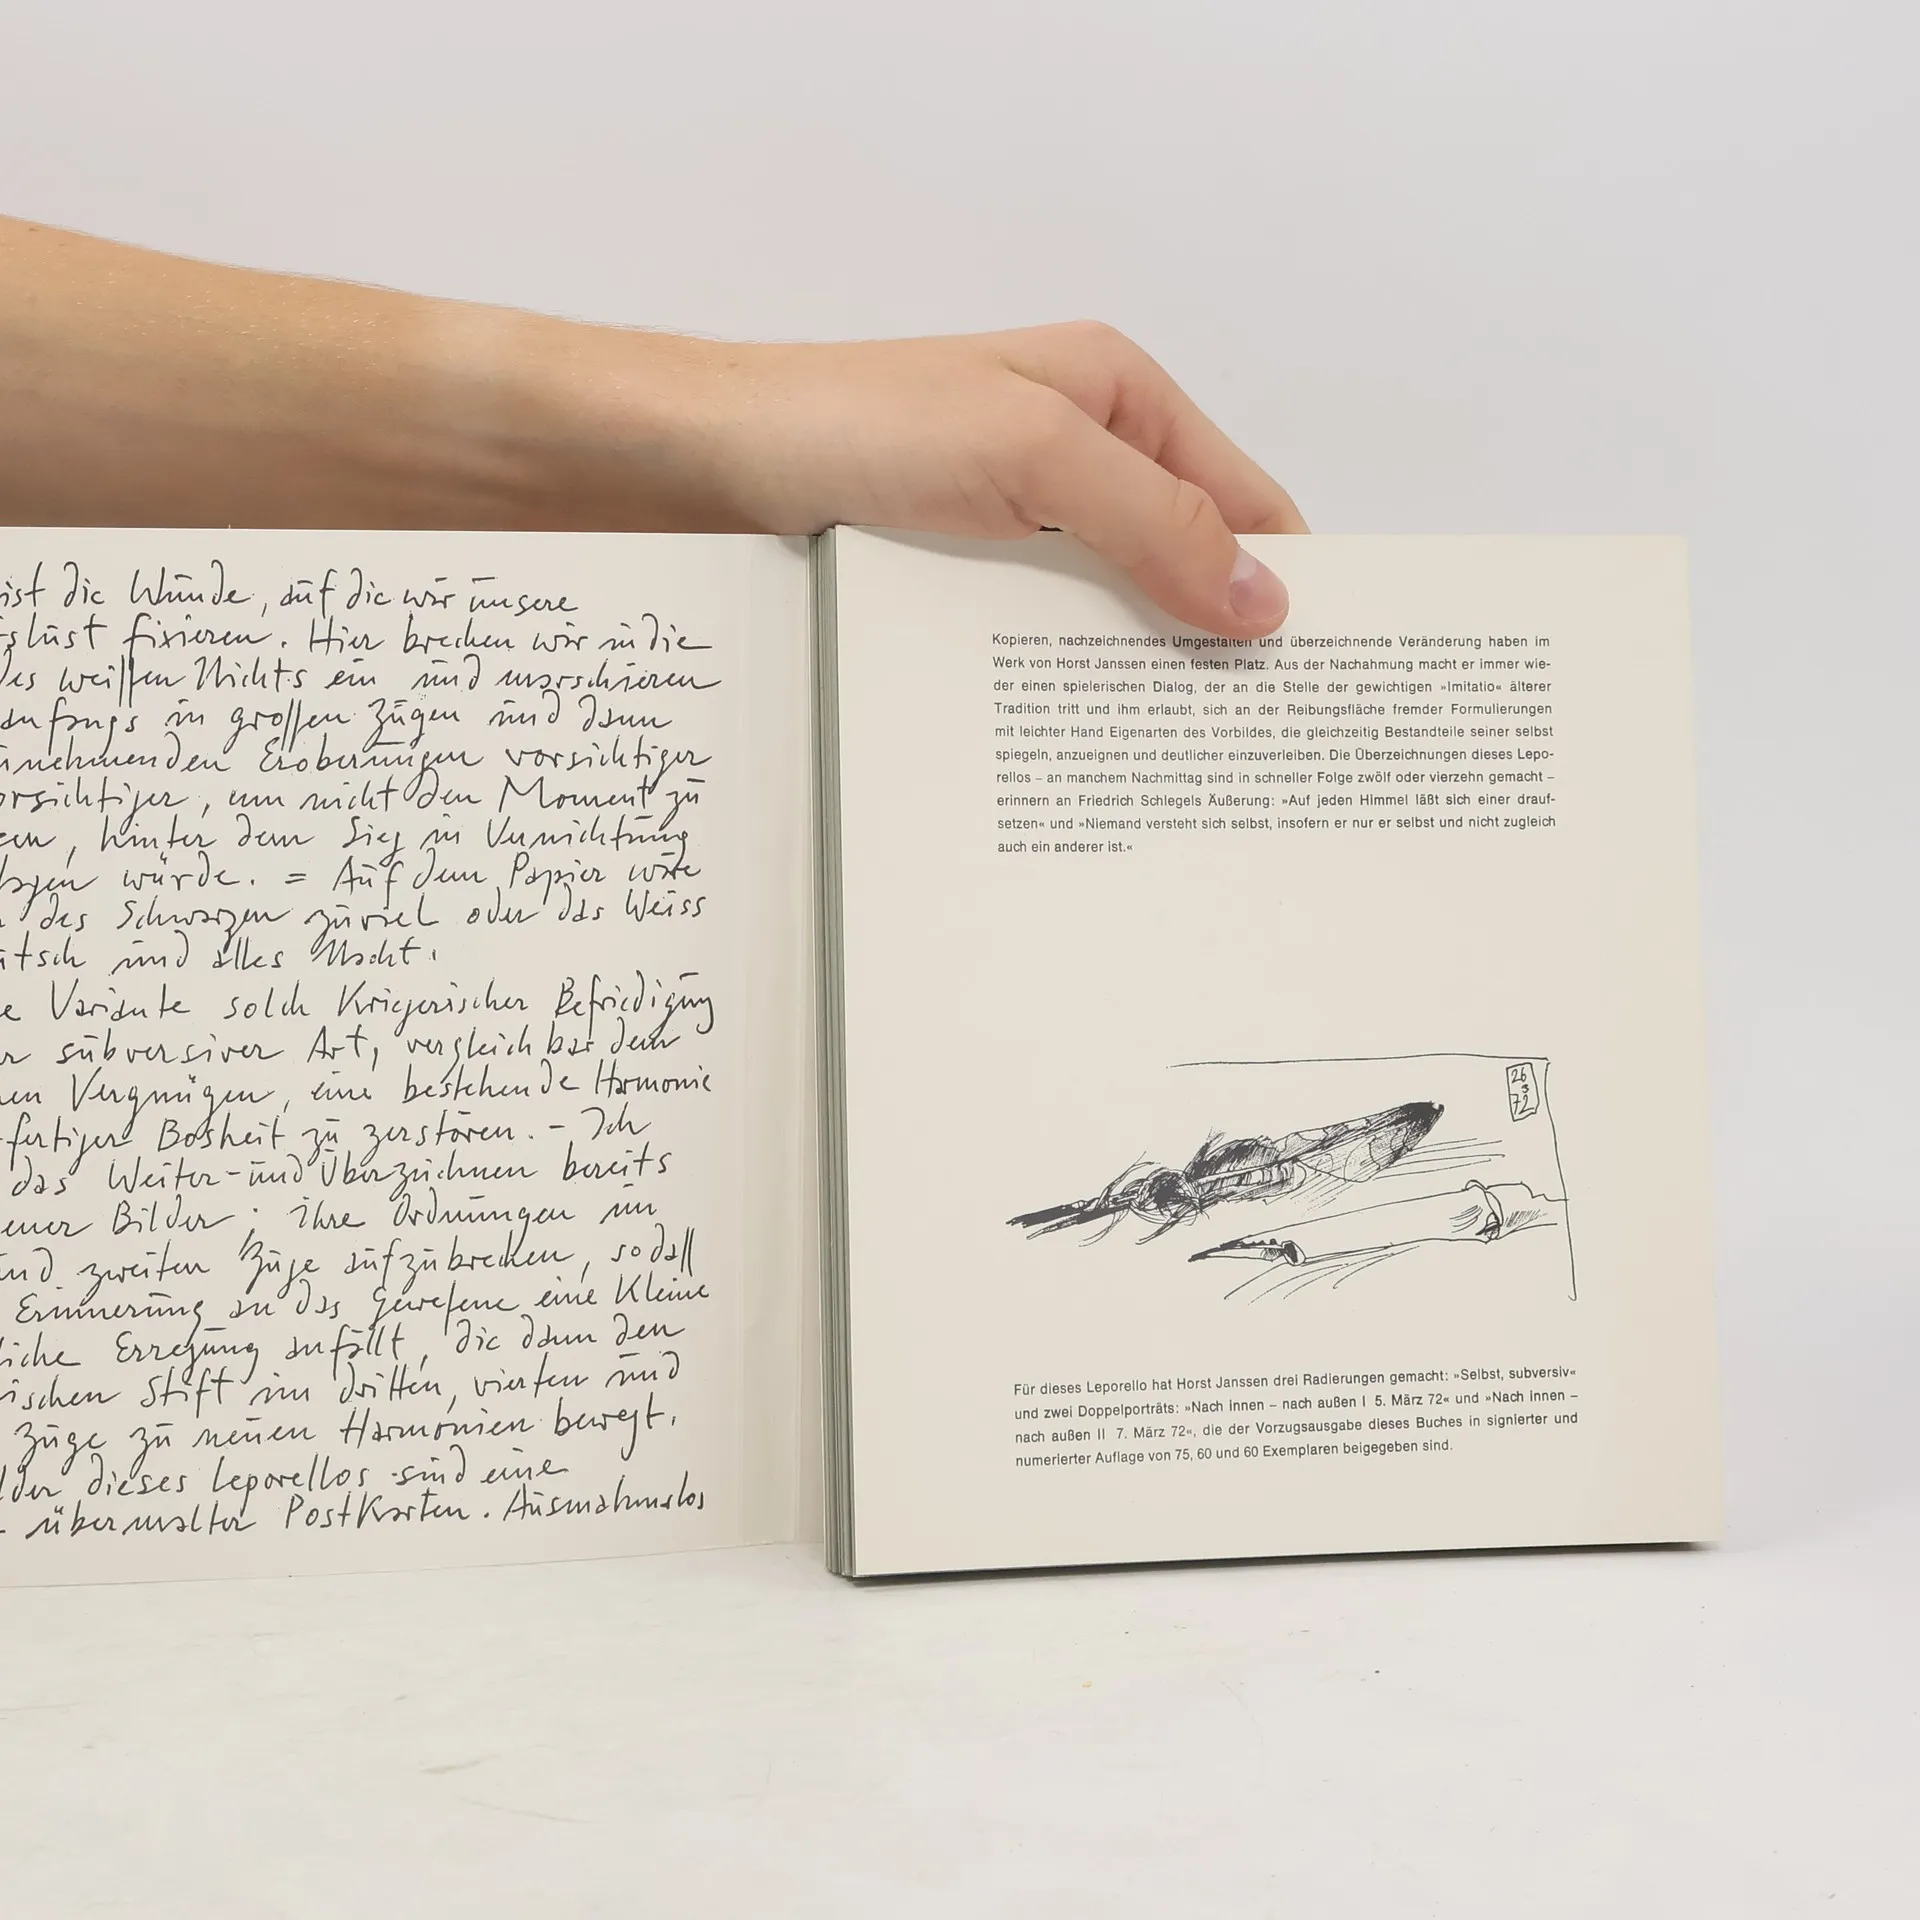 ist die Wunde, auf die wir unsere
slust fixieren. Hier brechen wir in die
des weißen Nichts ein und marschieren
anfangs in großen Zügen und dann
nehmenden Eroberungen vorsichtiger
orsichtiger, um nicht den Moment zu
hinter dem Sieg in Vernichtung
würde. = Auf dem Papier wäre
des Schwarzen zuviel oder das Weiss
utsch und alles Nacht.
e Variante solch Kriegerischer Befriedigung
er subversiver Art, vergleichbar dem
en Vergnügen, eine bestehende Harmonie
fertiger Bosheit zu zerstören. – Ich
das Weiter- und Überzeichnen bereits
ener Bilder; ihre Ordnungen im
und zweiten Zuge aufzubrechen, sodaß
Erinnerung an das Gewesene eine Kleine
liche Erregung anfällt, die dann den
ischen Stift im dritten, vierten und
Züge zu neuen Harmonien bewegt.
lder dieses Leporellos sind eine
übermalter PostKarten. Ausnahmslos
Kopieren, nachzeichnendes Umgestalten und überzeichnende Veränderung haben im
Werk von Horst Janssen einen festen Platz. Aus der Nachahmung macht er immer wie-
der einen spielerischen Dialog, der an die Stelle der gewichtigen »Imitatio« älterer
Tradition tritt und ihm erlaubt, sich an der Reibungsfläche fremder Formulierungen
mit leichter Hand Eigenarten des Vorbildes, die gleichzeitig Bestandteile seiner selbst
spiegeln, anzueignen und deutlicher einzuverleiben. Die Überzeichnungen dieses Lepo-
rellos – an manchem Nachmittag sind in schneller Folge zwölf oder vierzehn gemacht –
erinnern an Friedrich Schlegels Äußerung: »Auf jeden Himmel läßt sich einer drauf-
setzen« und »Niemand versteht sich selbst, insofern er nur er selbst und nicht zugleich
auch ein anderer ist.«
26
3
72
Für dieses Leporello hat Horst Janssen drei Radierungen gemacht: »Selbst, subversiv«
und zwei Doppelporträts: »Nach innen – nach außen I 5. März 72« und »Nach innen –
nach außen II 7. März 72«, die der Vorzugsausgabe dieses Buches in signierter und
numerierter Auflage von 75, 60 und 60 Exemplaren beigegeben sind.